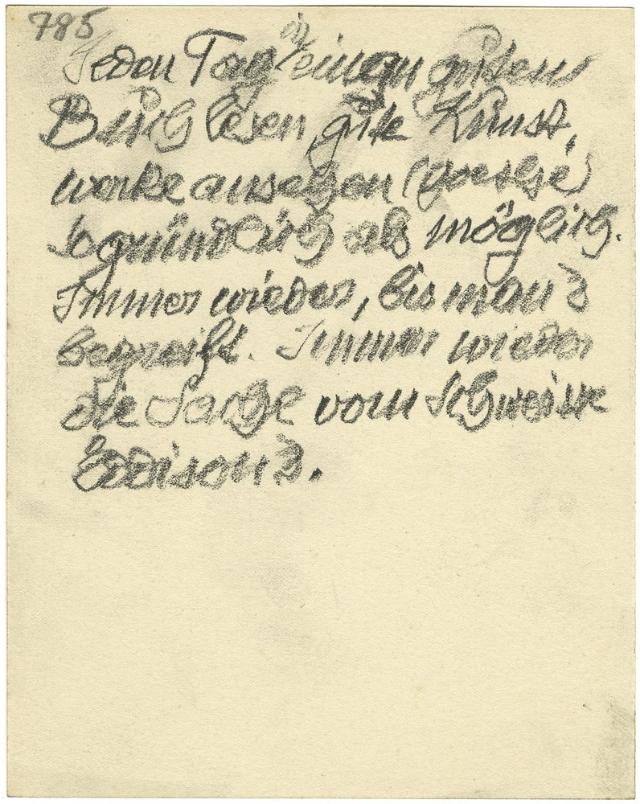 785
Jeden Tag in einem guten
Buch lesen, gute Kunst,
werke ansehen (Poesie)
so gründlich als möglich.
Immer wieder, bis man's
begreift. Immer wieder
die Sache vom Schweisse
Eddison's.